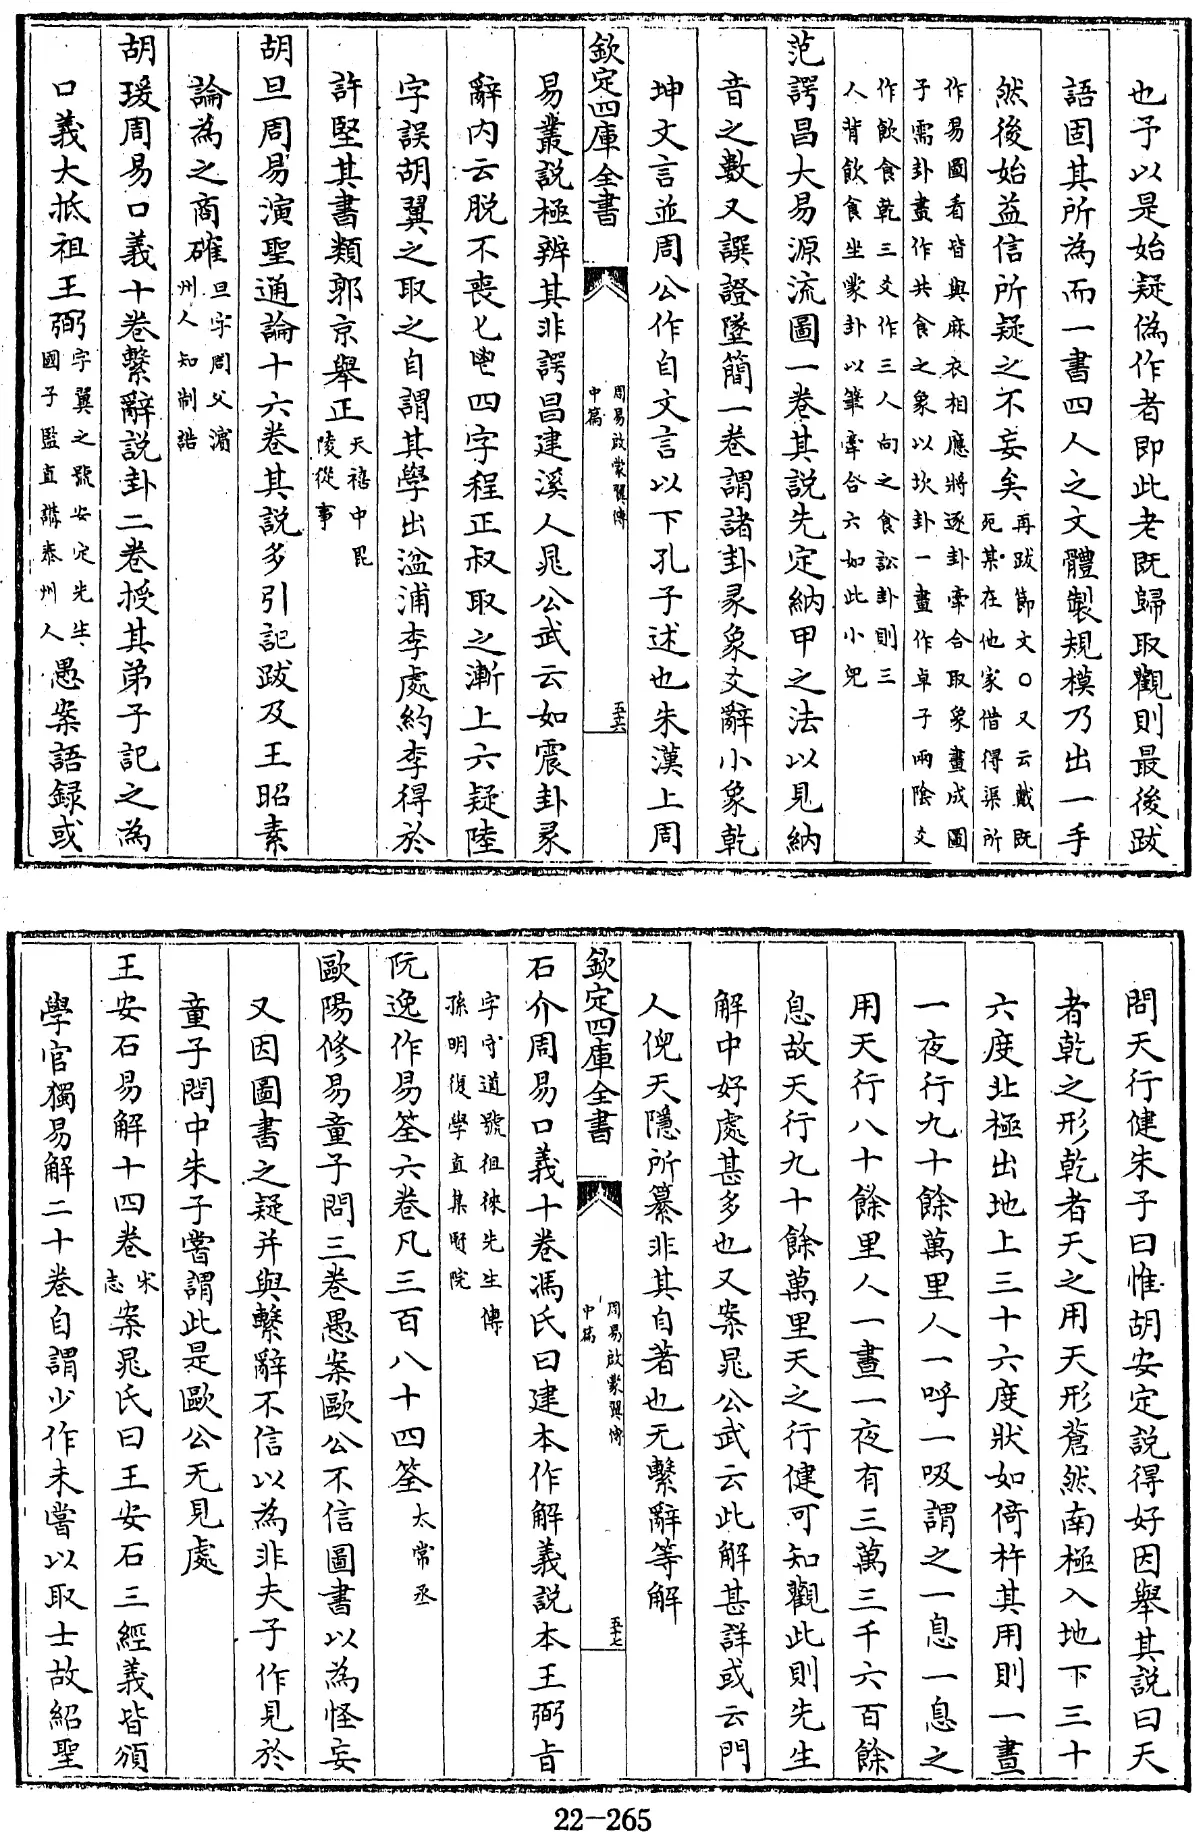 也予以是始疑偽作者即此老既歸取觀則最後跋
語固其所為而一書四人之文體製規模乃出一手
然後始益信所疑之不妄矣再跋節文〇又云戴既
死某在他家借得渠所
作易圖看皆與麻衣相應將逐卦牽合取象畫成圖
子需卦畫作共食之象以坎卦一畫作卓子兩陰爻
作飲食乾三爻作三人向之食訟卦則三
人背飲食坐蒙卦以筆牽合六如此小兒
范諤昌大易源流圖一卷其説先定納甲之法以見納
音之數又譔證墜簡一卷謂諸卦彖象爻辭小象乾
坤文言並周公作自文言以下孔子述也朱漢上周
欽定四庫全書
周易啟蒙翼傳
中篇
五十六
易叢説極辨其非諤昌建溪人晁公武云如震卦彖
辭内云脱不喪匕鬯四字程正叔取之漸上六疑陸
字誤胡翼之取之自謂其學出湓浦李處約李得於
許堅其書類郭京舉正天禧中毘
陵從事
胡旦周易演聖通論十六卷其説多引記跋及王昭素
論為之商確旦字周父濵
州人知制誥
胡瑗周易口義十卷繫辭説卦二卷授其弟子記之為
口義大抵祖王弼字翼之號安定先生
國子監直講泰州人愚案語録或
問天行健朱子曰惟胡安定説得好因舉其説曰天
者乾之形乾者天之用天形蒼然南極入地下三十
六度北極出地上三十六度狀如倚杵其用則一晝
一夜行九十餘萬里人一呼一吸謂之一息一息之
用天行八十餘里人一晝一夜有三萬三千六百餘
息故天行九十餘萬里天之行健可知觀此則先生
解中好處甚多也又案晁公武云此解甚詳或云門
人倪天隱所纂非其自著也无繫辭等解
欽定四庫全書
周易啟蒙翼傳
中篇
五十七
石介周易口義十卷馮氏曰建本作解義説本王弼旨
字守道號徂徠先生傳
孫明復學直集賢院
阮逸作易筌六卷凡三百八十四筌太常丞
歐陽修易童子問三卷愚案歐公不信圖書以為怪妄
又因圖書之疑并與繫辭不信以為非夫子作見於
童子問中朱子嘗謂此是歐公无見處
王安石易解十四卷宋
志案晁氏曰王安石三經義皆頒
學官獨易解二十卷自謂少作未嘗以取士故紹聖
22-265